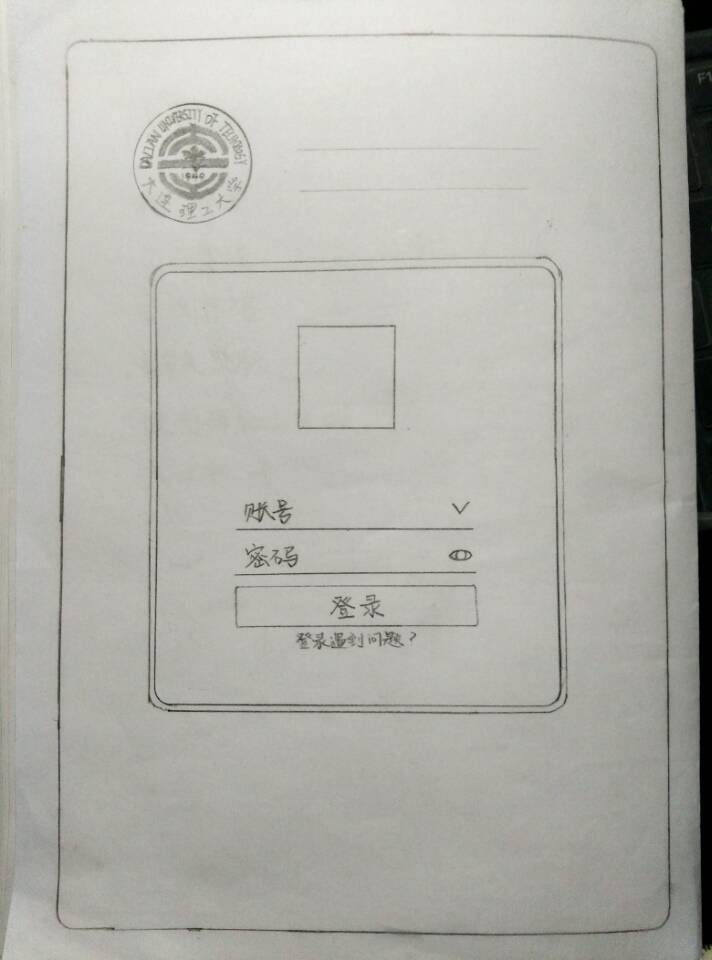 DALIAN UNIVERSITY OF TECHNOLOGY
1949
大连理工大学
账号
密码
登录
登录遇到问题?